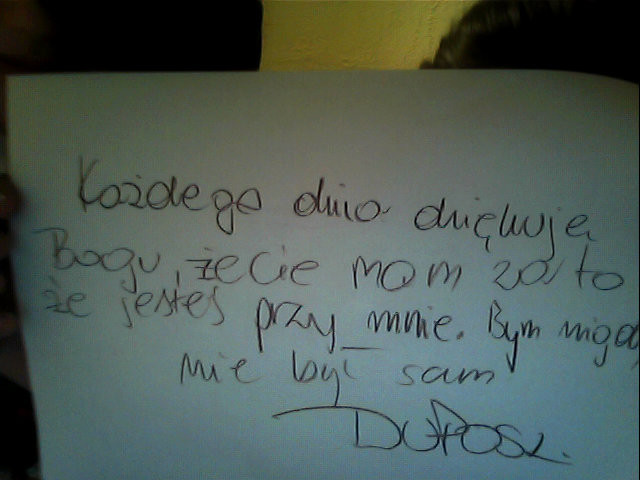 Każdego dnia dziękuję
Bogu, że cie mam za to
że jesteś przy mnie. Bym nigdy
nie był sam